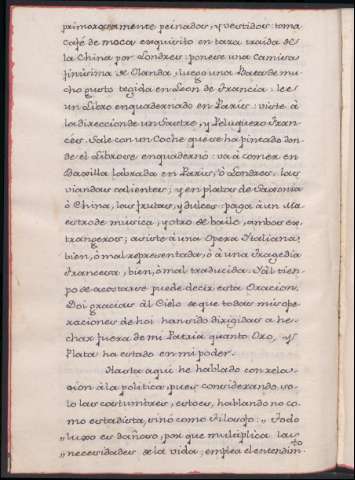 primorosamente peinados, y vestidos: toma
café de moca exquisito en taza traida de
la China por Londres: ponese una Camisa
finisima de Olanda, luego una Bata de mu
cho gusto tegida en Leon de Francia: lee
un Libro enquadernado en Paris: viste à
la direccion de un Sastre, y Peluquero Fran
cés. Sale con un Coche que se ha pintado don
de el Libro se enquadernó: va à comer en
Baxilla labrada en Paris, ò Londres, las
viandas calientes; y en platos de Saxonia
ò China, las frutas, y dulces: paga à un Ma
estro de musica, y otro de baile, ambos ex
trangeros; asiste à una Opera Italiana,
bien, ò mal representada, ò à una Tragedia
Francesa, bien, ò mal traducida. Y al tiem
po de acostarse puede decir esta Oracion.
Doi gracias al Cielo de que todas mis ope
raciones de hoi han sido dirigidas a he-
char fuera de mi Patria quanto Oro, y
Plata ha estado en mi poder.
Hasta aqui he hablado con rela-
cion à la politica, pues considerando so-
lo las costumbres, esto es, hablando no co-
mo estadista, sinó como Filosofo: „ Todo
„ luxo es dañoso, por que multiplica las
„ necesidades de la vida, emplea el entendim.to